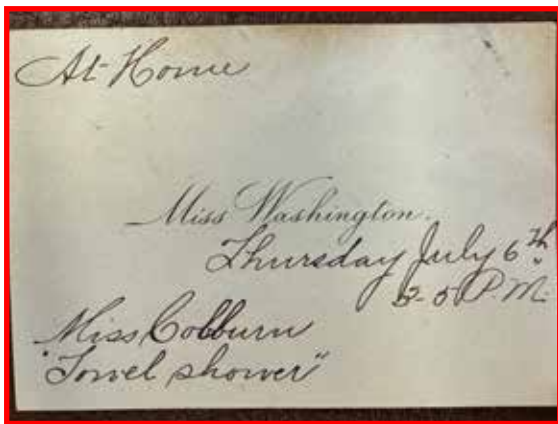 At-Home
Miss Washington.
Thursday July 6th
3-5 P.M.
Miss Colburn
"Towel shower"